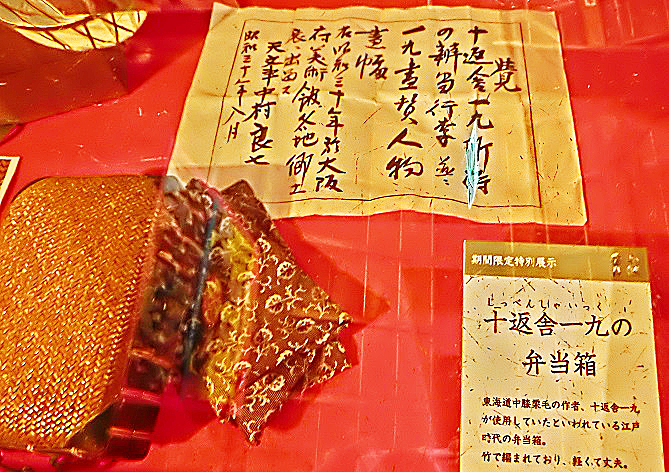 覚
十返舎一九所持
の辨当行李並ニ
一九画賛人物
画幅
右昭和三十年於大阪
府美術館各地郷土
展ニ出品ス
天文亭中村良七
昭和三十年八月
期間限定特別展示
じっぺんしゃいっく
十返舎一九の
弁当箱
東海道中膝栗毛の作者、十返舎一九
が使用していたといわれている江戸
時代の弁当箱。
竹で編まれており、軽くて丈夫。